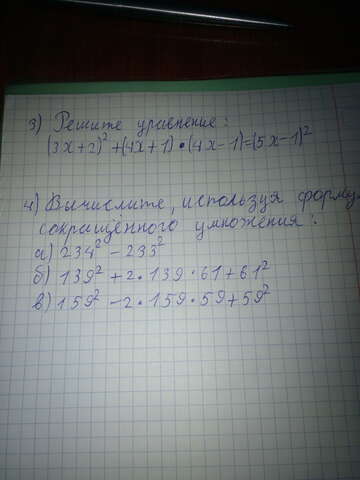 3) Решите уравнение:
(3x+2)²+(4x+1)•(4x-1)=(5x-1)²
4) Вычислите, используя форму
сокращённого умножения:
а) 234²-233²
б) 139²+2•139•61+61²
в) 159²-2•159•59+59²